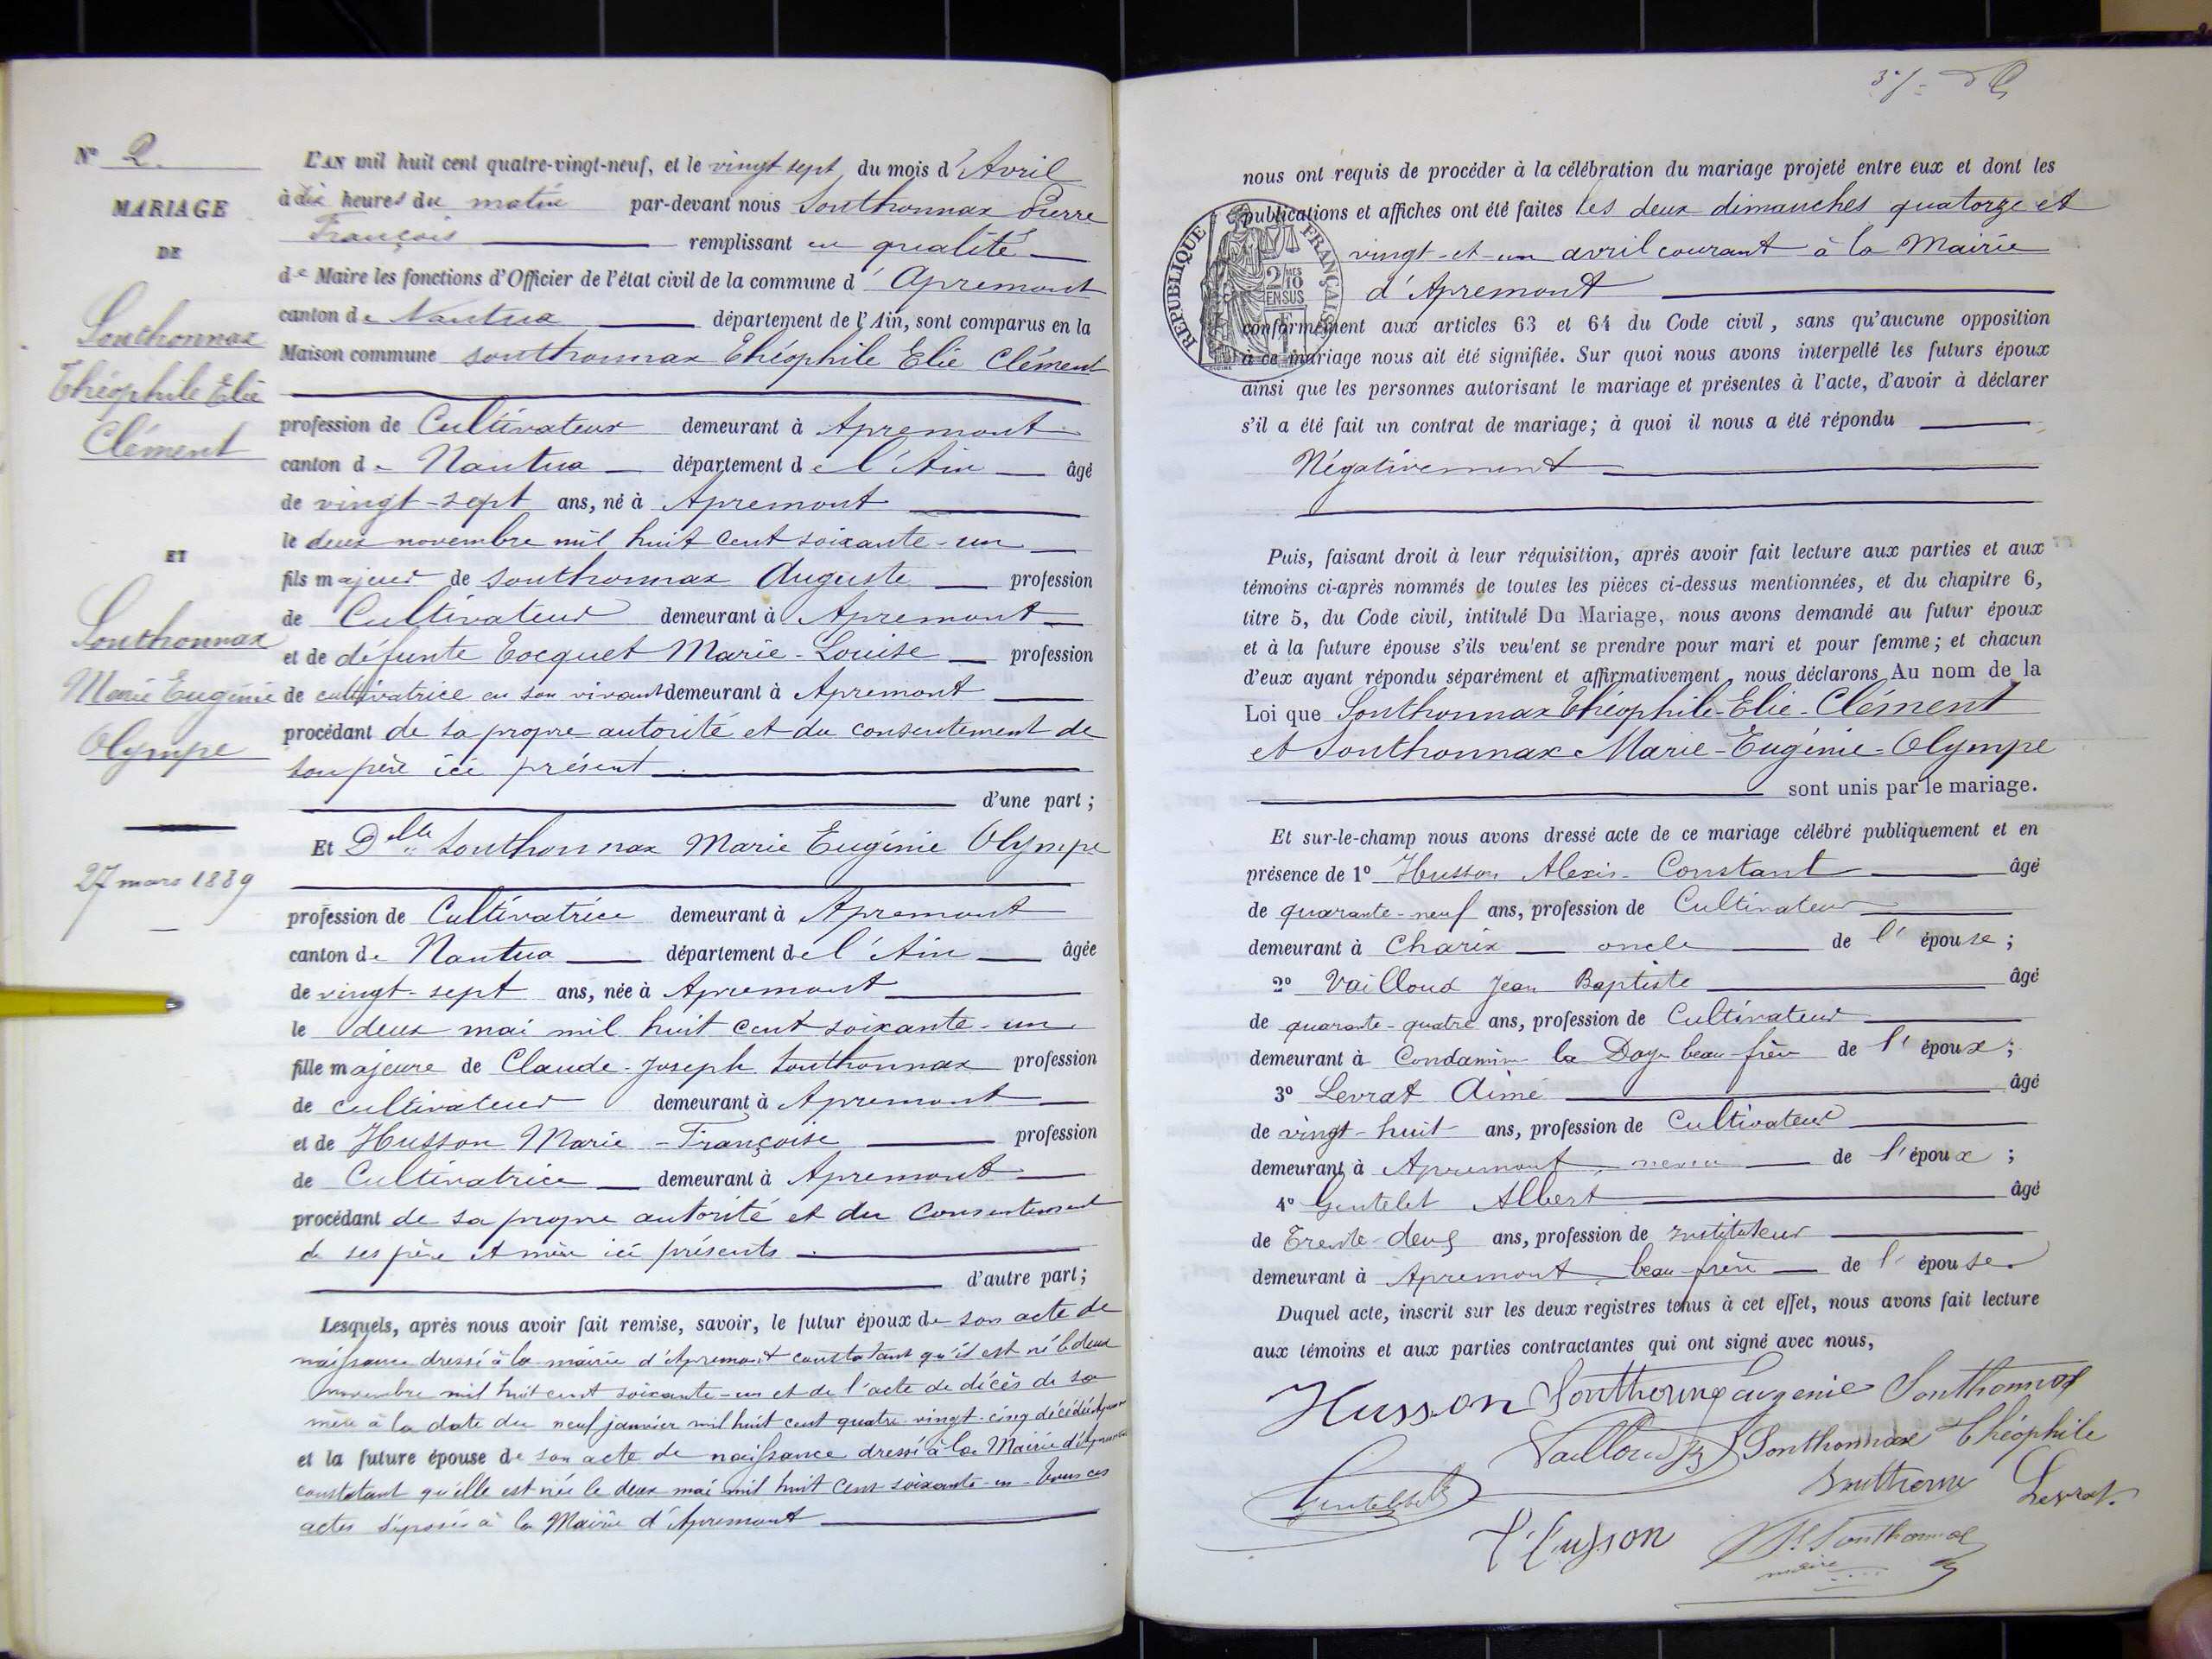 N° 2.
MARIAGE
DE
Southonnax
Théophile Elie
Clément
ET
Southonnax
Marie Eugénie
Olympe
27 mars 1889
L'AN mil huit cent quatre-vingt-neuf, et le vingt sept du mois d'Avril
à dix heures du matin par-devant nous Southonnax Pierre
François remplissant en qualité
de Maire les fonctions d'Officier de l'état civil de la commune d'Apremont
canton de Nantua département de l'Ain, sont comparus en la
Maison commune Southonnax Théophile Elie Clément
profession de Cultivateur demeurant à Apremont
canton de Nantua département de l'Ain âgé
de vingt-sept ans, né à Apremont
le deux novembre mil huit cent soixante-un
fils majeur de Southonnax Auguste profession
de Cultivateur demeurant à Apremont
et de défunte Tocquet Marie-Louise profession
de cultivatrice en son vivant demeurant à Apremont
procédant de sa propre autorité et du consentement de
son père ici présent
d'une part ;
Et Dlle Southonnax Marie Eugénie Olympe
profession de Cultivatrice demeurant à Apremont
canton de Nantua département de l'Ain âgée
de vingt-sept ans, née à Apremont
le deux mai mil huit cent soixante-un
fille majeure de Claude-Joseph Southonnax profession
de cultivateur demeurant à Apremont
et de Husson Marie-Françoise profession
de Cultivatrice demeurant à Apremont
procédant de sa propre autorité et du consentement
de ses père et mère ici présents
d'autre part ;
Lesquels, après nous avoir fait remise, savoir, le futur époux de son acte de
naissance dressé à la mairie d'Apremont constatant qu'il est né le deux
novembre mil huit cent soixante-un et de l'acte de décès de sa
mère à la date du neuf janvier mil huit cent quatre-vingt-cinq décédée à Apremont
et la future épouse de son acte de naissance dressé à la Mairie d'Apremont
constatant qu'elle est née le deux mai mil huit cent soixante-un. Tous ces
actes déposés à la Mairie d'Apremont
nous ont requis de procéder à la célébration du mariage projeté entre eux et dont les
publications et affiches ont été faites les deux dimanches quatorze et
vingt-et-un avril courant à la Mairie
d'Apremont
REPUBLIQUE FRANÇAISE
2/10 MES
EN SUS
conformément aux articles 63 et 64 du Code civil, sans qu'aucune opposition
à ce mariage nous ait été signifiée. Sur quoi nous avons interpellé les futurs époux
ainsi que les personnes autorisant le mariage et présentes à l'acte, d'avoir à déclarer
s'il a été fait un contrat de mariage ; à quoi il nous a été répondu
Négativement
Puis, faisant droit à leur réquisition, après avoir fait lecture aux parties et aux
témoins ci-après nommés de toutes les pièces ci-dessus mentionnées, et du chapitre 6,
titre 5, du Code civil, intitulé Du Mariage, nous avons demandé au futur époux
et à la future épouse s'ils veulent se prendre pour mari et pour femme ; et chacun
d'eux ayant répondu séparément et affirmativement, nous déclarons Au nom de la
Loi que Southonnax Théophile-Elie-Clément
et Southonnax Marie-Eugénie-Olympe
sont unis par le mariage.
Et sur-le-champ nous avons dressé acte de ce mariage célébré publiquement et en
présence de 1° Husson Alexis-Constant âgé
de quarante-neuf ans, profession de Cultivateur
demeurant à Charix oncle de l'épouse ;
2° Vailloud Jean Baptiste âgé
de quarante-quatre ans, profession de Cultivateur
demeurant à Condamine la Doye beau-frère de l'époux ;
3° Levrat Aimé âgé
de vingt-huit ans, profession de Cultivateur
demeurant à Apremont neveu de l'époux ;
4° Gentelet Albert âgé
de Trente-deux ans, profession de Instituteur
demeurant à Apremont beau-frère de l'épouse.
Duquel acte, inscrit sur les deux registres tenus à cet effet, nous avons fait lecture
aux témoins et aux parties contractantes qui ont signé avec nous,
Husson Southonnax Eugénie Southonnax
Vailloud JB Southonnax Théophile
Gentelet Southonnax Levrat
Husson Southonnax
maire